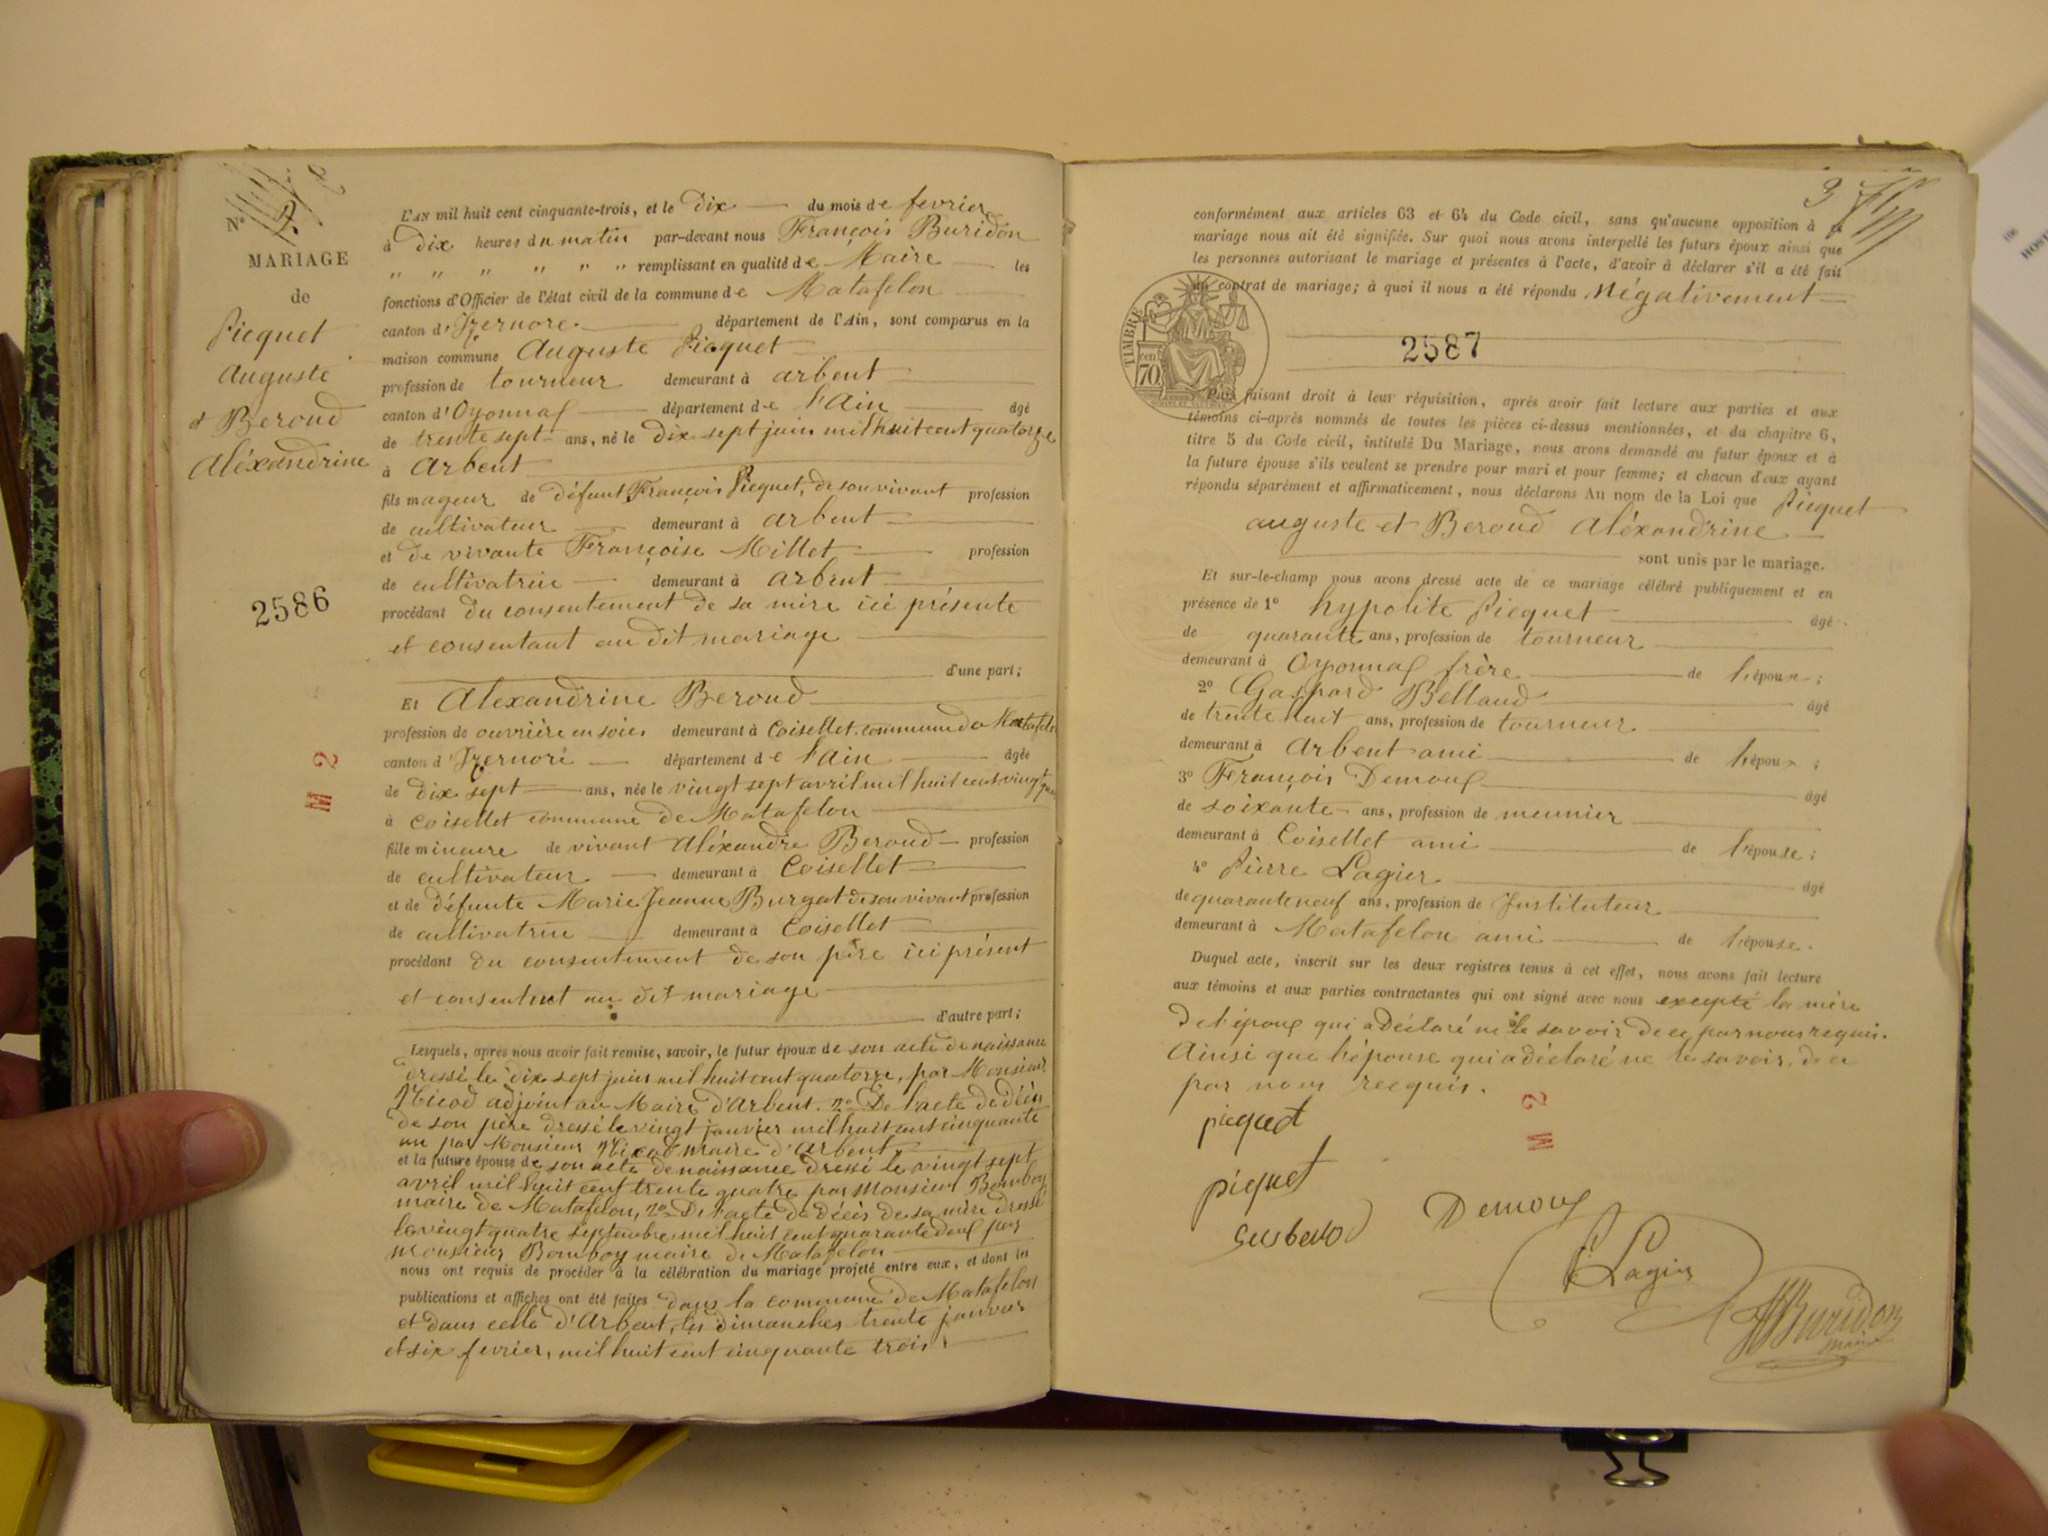 N° 2
MARIAGE
de
Picquet
Auguste
et Beroud
Aléxandrine
2586
M 2
L'AN mil huit cent cinquante-trois, et le dix du mois de fevrier
à dix heures du matin par-devant nous François Buridon
" " " " " " remplissant en qualité de Maire les
fonctions d'Officier de l'état civil de la commune de Matafelon
canton d'Izernore département de l'Ain, sont comparus en la
maison commune Auguste Picquet
profession de tourneur demeurant à arbent
canton d'Oyonnax département de l'Ain âgé
de trente sept ans, né le dix sept juin mil huit cent quatorze
à Arbent
fils mageur de défunt François Picquet, de son vivant profession
de cultivateur demeurant à arbent
et de vivante Françoise Millet profession
de cultivatrice demeurant à arbent
procédant du consentement de sa mère ici présente
et consentant au dit mariage
d'une part;
Et Alexandrine Beroud
profession de ouvrière en soie demeurant à Coisellet commune de Matafelon
canton d'Izernore département de l'Ain âgée
de dix sept ans, née le vingt sept avril mil huit cent vingt
à Coisellet commune de Matafelon
fille mineure de vivant Aléxandre Beroud profession
de cultivateur demeurant à Coisellet
et de défunte Marie Jeanne Burgat de son vivant profession
de cultivatrice demeurant à Coisellet
procédant du consentement de son père ici présent
et consentent au dit mariage
d'autre part;
Lesquels, après nous avoir fait remise, savoir, le futur époux de son acte de naissance
dressé le dix sept juin mil huit cent quatorze, par Monsieur
Nicod adjoint au Maire d'Arbent. 2° De l'acte de décès
de son père dressé le vingt janvier mil huit cent cinquante
un par Monsieur Nicod maire d'Arbent
et la future épouse de son acte de naissance dressé le vingt sept
avril mil huit cent trente quatre par Monsieur Bomboy
maire de Matafelon, 2° De l'acte de décès de sa mère dressé
le vingt quatre septembre mil huit cent quarante deux par
Monsieur Bomboy maire de Matafelon
nous ont requis de procéder à la célébration du mariage projeté entre eux, et dont les
publications et affiches ont été faites dans la commune de Matafelon
et dans celle d'Arbent, les dimanches trente janvier
et six fevrier, mil huit cent cinquante trois
3
conformément aux articles 63 et 64 du Code civil, sans qu'aucune opposition à ce
mariage nous ait été signifiée. Sur quoi nous avons interpellé les futurs époux ainsi que
les personnes autorisant le mariage et présentes à l'acte, d'avoir à déclarer s'il a été fait
du contrat de mariage; à quoi il nous a été répondu Négativement
TIMBRE
cent
70
2587
Puis faisant droit à leur réquisition, après avoir fait lecture aux parties et aux
témoins ci-après nommés de toutes les pièces ci-dessus mentionnées, et du chapitre 6,
titre 5 du Code civil, intitulé Du Mariage, nous avons demandé au futur époux et à
la future épouse s'ils veulent se prendre pour mari et pour femme; et chacun d'eux ayant
répondu séparément et affirmativement, nous déclarons Au nom de la Loi que Picquet
auguste et Beroud Aléxandrine
sont unis par le mariage.
Et sur-le-champ nous avons dressé acte de ce mariage célébré publiquement et en
présence de 1° hypolite Picquet âgé
de quarante ans, profession de tourneur
demeurant à Oyonnax frère de l'époux;
2° Gaspard Belloud âgé
de trente huit ans, profession de tourneur
demeurant à Arbent ami de l'époux;
3° François Demoux âgé
de soixante ans, profession de meunier
demeurant à Coisellet ami de l'épouse;
4° Pierre Lagier âgé
de quarante neuf ans, profession de Instituteur
demeurant à Matafelon ami de l'épouse.
Duquel acte, inscrit sur les deux registres tenus à cet effet, nous avons fait lecture
aux témoins et aux parties contractantes qui ont signé avec nous excepté la mère
de l'époux qui a déclaré ne le savoir de ce par nous requis.
Ainsi que l'épouse qui a déclaré ne le savoir, de ce
par nous recquis.
M 2
picquet
piquet
Demoux
Lagier
Buridon
maire